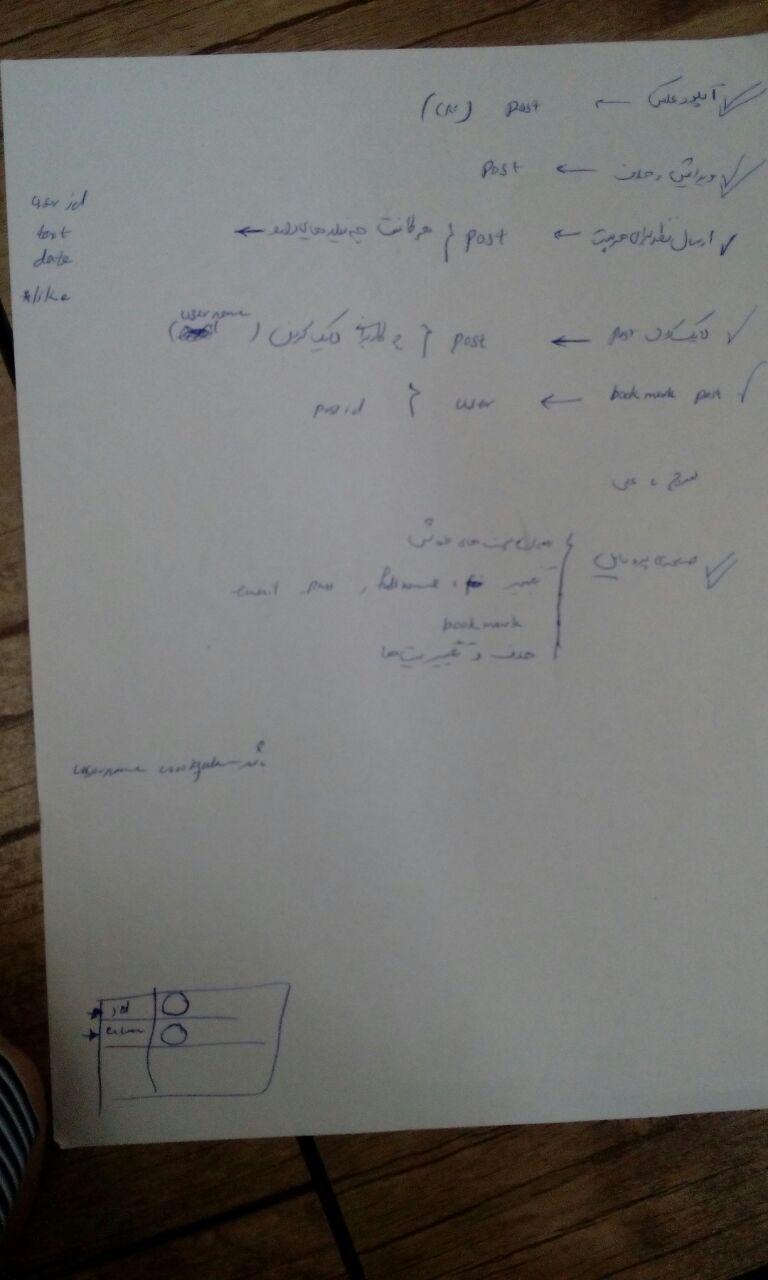 آپلود عکس ← post
ویرایش و حذف ← post
ارسال نظر برای هر پست ← post { هر کامنت چه فیلدهایی دارد ←
user id
text
date
*like
لایک کردن post ← post { چه کاربرانی لایک کردن (username)
book mark post ← user { post id
سرچ
صفحه‌ی پروفایل {
پست‌های خودش
تغییر fullname , pass , email
bookmark
حذف و تغییر پست‌ها
username
id